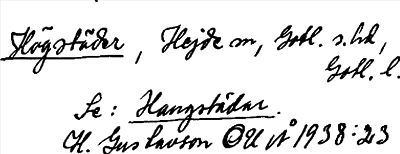 Högstäder, Hejde sn, Gotl. s. hd,
Gotl. l.
Se: Hangstädar.
H. Gustavson OUÅ 1938:23